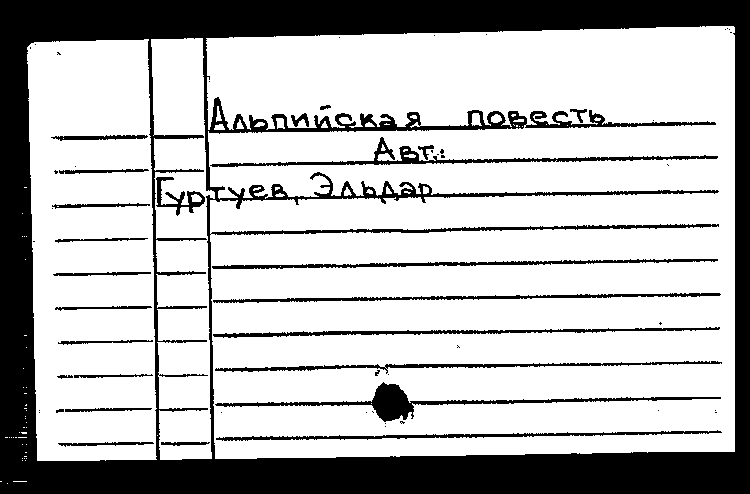 Альпийская повесть.
Авт.:
Гуртуев, Эльдар.